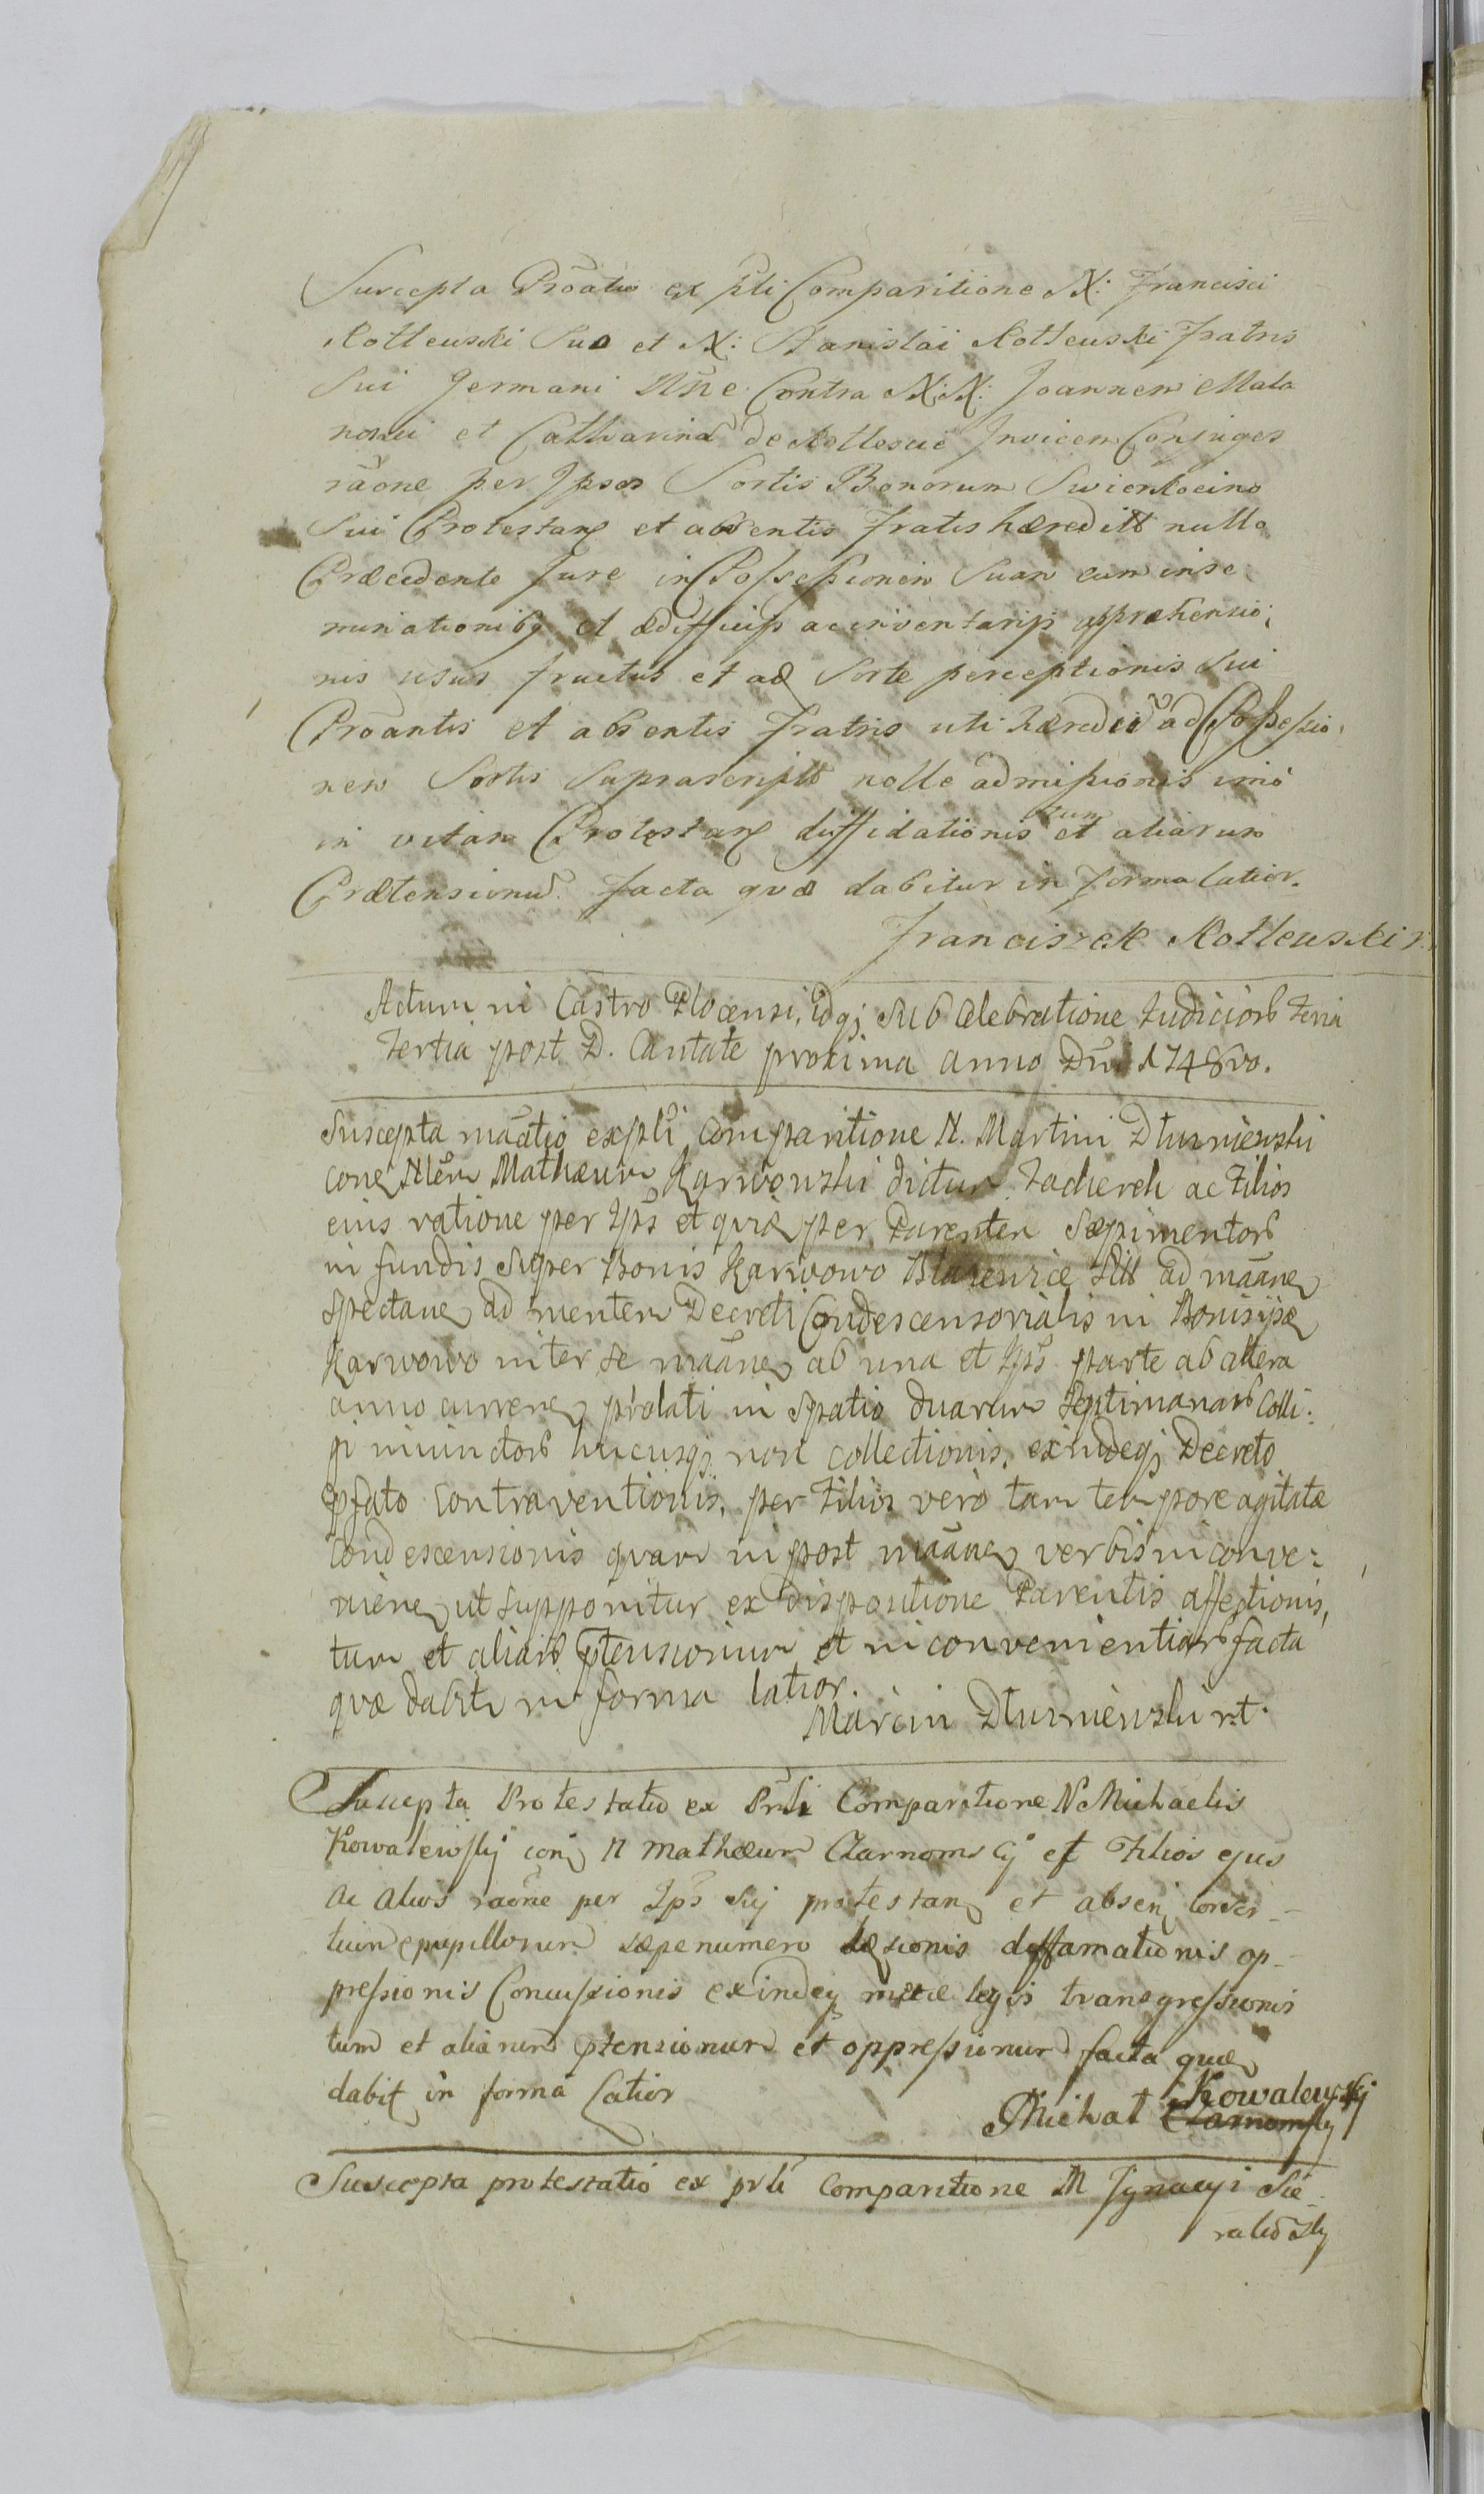 Suscepta Prõatio ex p̃sti Comparitione N: Francisci
Kotlewski Suo et N: Stanislai Kotlewski Fratris
Sui Germani Nñe Contra N:N: Joannem Mala
nowski et Catharina de Invicem Conjuges
rãone per Ipsos Sortis Bonorum Swienkocino
Sui Protestanȩ et absentis Fratis hæreditt nullo
Præcedente Jure in Possessionem Suam cum inse
minationibȝ et ædifficijs ac inventarijs appræhensio:
nis usus fructus et ad Sorte perceptionis Sui
Prõantis et absentis Fratris uti hæredes ad Possessio:
nem Sortis Suprascriptt nolle admissionis imo
in vitam Protestanȩ diffidationis tum et aliarum
Prætensionum facta quæ dabitur in forma latior.
Franciszek Kotlewski
Actum in Castro Plocensi, idqȝ sub celebratione Judiciorȝ Feria
Tertia post D. Cantate proxima anno Dni 1748vo.
Suscepta mãatio ex p̃sti Comparitione N. Martini Dłuzniewski
conȩ Nlem Mathæum Karwowski dictum ac Filios
eius ratione per Ips̃ et quidȩ per Parentem Sæpimentorȝ
in fundis super Bonis Karwowo ad mãanȩ
spectanȩ ad mentem Decreti Condescensorialis in Bonis ijsdȩ
Karwowo inter se mãanȩ ab una et Ips̃ parte ab altera
anno currenȩ prolati in spatio duarum Septimanarȝ Colli:
gi iniunctorȝ hucusqȝ non collectionis, exindeqȝ Decreto
p̃fato contraventionis, per Filios vero tam tempore agitatæ
condescensionis quam in post mãanȩ verbis inconve:
nienȩ ut supponitur ex dispositione Parentis affectionis,
tum et aliarȝ p̃tensionum et inconvenientiarȝ facta
quæ dabitr in forma latior.
Marcin Dłuzniewski mt.
Suscepta Protestatio ex Prṽsti Comparitione N Michaelis
Kowalewskÿ conȩ N Mathæum Czarnomskÿ et Filios ejus
ac alios raõne per Ips̃ Sui protestanȩ et absenȩ consor-
tium pupillorum sæpenumero læsionis diffamationis op-
pressionis Concussionis exindeqȝ metæ legis transgressionis
tum et aliarum p̃tensionum et oppressionum facta quæ
dabitȩ in forma latior
Michał Kowalewskij
Czarnomskÿ
Suscepta protestatio ex p̃rsti Comparitione M Jgnacyi Sie-